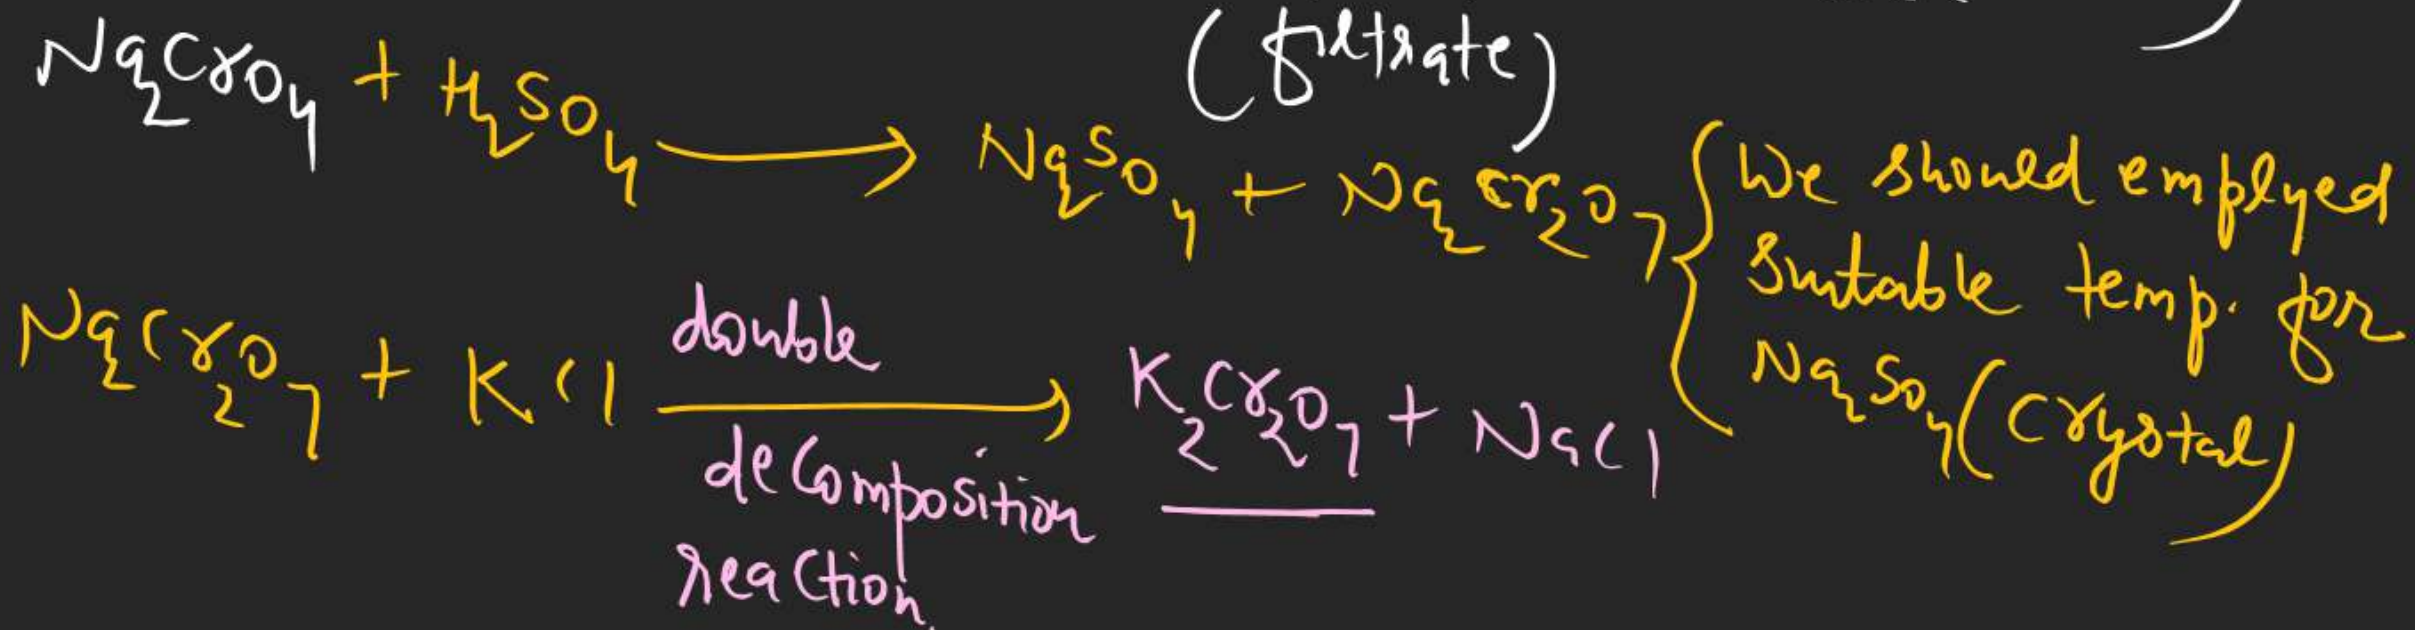 (filtrate)
Na2CrO4 + H2SO4 ⟶ Na2SO4 + Na2Cr2O7 { We should emplyed
suitable temp. for
Na2SO4 (Crystal)
Na2Cr2O7 + KCl double decomposition reaction ⟶ K2Cr2O7 + NaCl